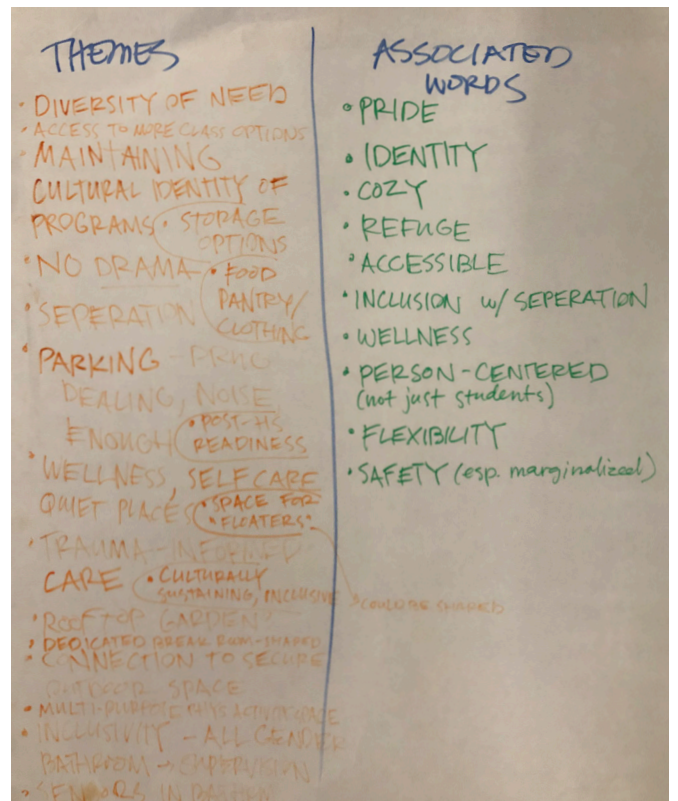 THEMES
• DIVERSITY OF NEED
• ACCESS TO MORE CLASS OPTIONS
• MAINTAINING
CULTURAL IDENTITY OF
PROGRAMS • STORAGE
OPTIONS
• NO DRAMA • FOOD
PANTRY/
• SEPERATION CLOTHING
• PARKING - DRUG
DEALING, NOISE
ENOUGH • POST-HS
READINESS
• WELLNESS, SELF CARE
QUIET PLACES • SPACE FOR
"FLOATERS"
• TRAUMA-INFORMED
CARE • CULTURALLY
SUSTAINING, INCLUSIVE
• ROOFTOP GARDEN
• DEDICATED BREAK ROOM-SHARED
• CONNECTION TO SECURE
OUTDOOR SPACE
• MULTI-PURPOSE PHYS ACTIVITY SPACE
• INCLUSIVITY - ALL GENDER
BATHROOM → SUPERVISION
• SENSORS IN
COULD BE SHARED
ASSOCIATED
WORDS
• PRIDE
• IDENTITY
• COZY
• REFUGE
• ACCESSIBLE
• INCLUSION w/ SEPERATION
• WELLNESS
• PERSON-CENTERED
(not just students)
• FLEXIBILITY
• SAFETY (esp. marginalized)